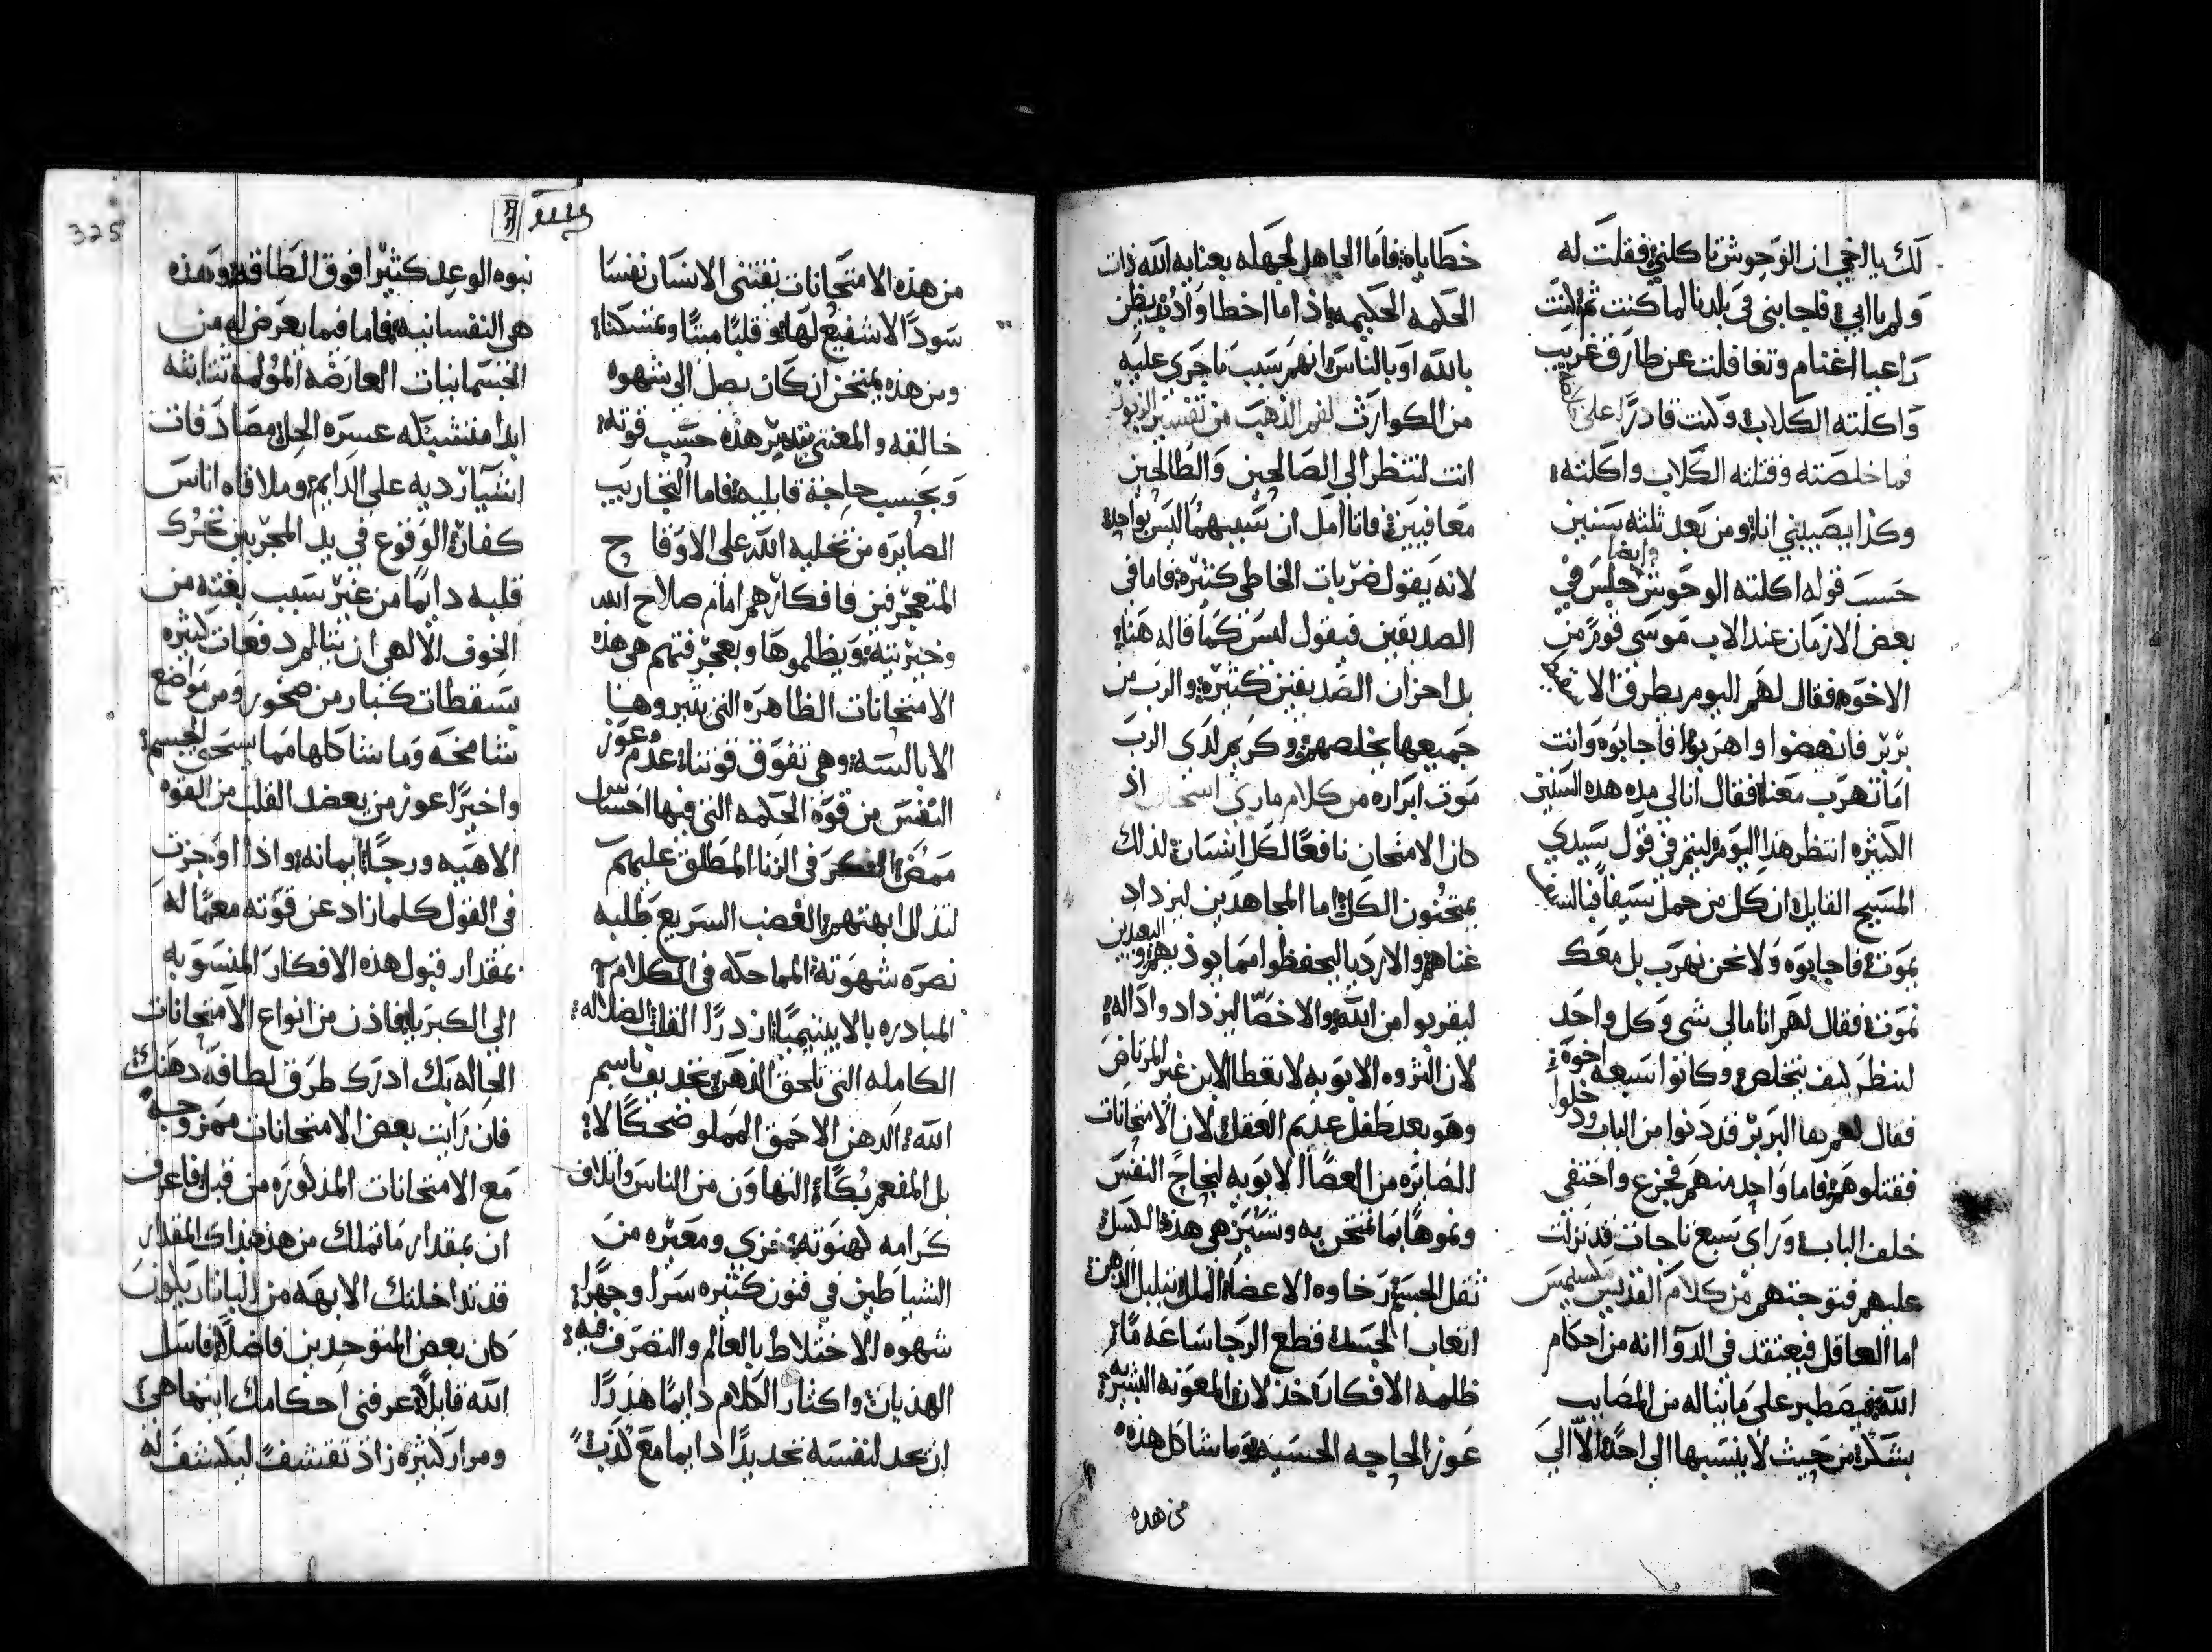 لك يا اخي ان الوحوش تاكلني فقلت له
ولم يا ابي فاجابني في بلدنا لما كنت ثم كنت
راعيا اغنام وتغافلت عن طارق غريب
واكلته الكلاب وكنت قادرا على
فما خلصته وقتلته الكلاب واكلته
وكذا يصيبني انا ومن بعد ثلثه سنين
حسب قوله اكلته الوحوش وايضا جلس في
بعض الازمان عند الاب موسى قوم من
الاخوه فقال لهم اليوم يطرق الاسقيط
بربر فانهضوا واهربوا فاجابوه وانت
اما تهرب معنا فقال انا لي مده هذه السنين
الكثيره انتظر هذا اليوم ليتم في قول سيدي
المسيح القايل ان كل من حمل سيفا فبالسيف
يموت فاجابوه ولا نحن نهرب بل معك
نموت فقال لهم انا مالي شي وكل واحد
لينظر كيف يتخلص وكانوا سبعه اخوه
فقال لهم ها البربر قد دنوا من الباب ودخلوا
فقتلوهم فاما واحد منهم فجزع واختفى
خلف الباب وراى سبع تاجات قد نزلت
عليهم فتوجتهم من كلام القديس مكسيمس
اما العاقل فيعتقد في الدوا انه من احكام
الله فيصطبر على ما يناله من المصايب
بشكر من حيث لا ينسبها الى احد الا الى
خطاياه فاما الجاهل لجهله بعنايه الله ذات
الحكمه الحكيمه اذا ما اخطا وادب يظن
بالله او بالناس انهم سبب ما جرى عليه
من الكوارث لفم الذهب من تفسير الزبور
انت لتنظر الى الصالحين والطالحين
معاقبين فانا امل ان سببهما ليس بواحد
لانه يقول ضربات الخاطي كثيره فاما في
الصديقين فيقول ليس كما قاله هنا
بل احزان الصديقين كثيره والرب من
جميعها يخلصهم وكريم لدى الرب
موت ابراره من كلام ماري اسحاق اذ
كان الامتحان نافعا لكل انسان لذلك
يمتحنون الكل اما المجاهدين ليزداد
غناهم والارديا ليحفظوا مما يوذيهم والبعيدين
ليقربوا من الله والاخصا ليزداد وا داله
لان الثروه الابويه لا تعطا الابن غير المرتاض
وهو بعد طفل عديم العقل لان الامتحانات
الصايره من العصا الابويه لنجاح النفس
ونموها بما تمتحن به وتسير هي هذه الكسل
ثقل الجسد رخاوه الاعضا الملل تبلبل الذهن
اتعاب الجسد قطع الرجا ساعه ما
ظلمه الافكار خذلان المعونه البشريه
عوز الحاجه الحسيه وما شاكل هذه
من هذه
325
من هذه الامتحانات يقتني الانسان نفسا
سودا لا شفيع لها وقلبا ميتا وتمسكنا
ومن هذه يمتحن ان كان يصل الى شهوه
خالقه والمعتني يدبر هذه حسب قوته
وبحسب حاجة قابليه فاما التجاريب
الصايره من تخليه الله على الاوقاح
المتعجرفين فافكارهم امام صلاح الله
وخيريته ويظلموها وبعجرفتهم هي هذه
الامتحانات الظاهره التي يثيروها
الابالسه وهي تفوق قوتنا عدم وعوز
النفس من قوة الحكمه التي فيها احساس
ممض الفكر في الزنا المطلق عليهم
لتذلل ابهتهم الغضب السريع ظلبه
نصره شهوته المماحكه في الكلام
المبادره بالاينتيميا ازدرا القلب الضلاله
الكامله التي تلحق الذهن تجديف باسم
الله الذهن الاحمق المملو ضحكا لا
بل المفعم بكا التهاون من الناس واتلاف
كرامه كهنوته خزي ومعيره من
الشياطين في فنون كثيره سرا وجهرا
شهوه الاختلاط بالعالم والتصرف فيه
الهذيان واكثار الكلام دايما هذرا
ان يجد لنفسه تجديدا دايما مع كذب
نبوه الوعد كثيرا فوق الطاقه وهذه
هي النفسانيه فاما فيما يعرض له من
الجسمانيات العارضه المولمه تتابثه
ابدا متشبكه عسره الحل مصادفات
اشيا رديه على الدايم وملاقاه اناس
كفار الوقوع في يد المجربين تحرك
قلبه دايما من غير سبب بغته من
الخوف الالهي ان يتالم دفعات كثيره
بسقطات كبار من صخور ومن مواضع
شامخه وما شاكلها مما يسحق الجسم
واخيرا عوز من يعضد القلب من القوه
الاهيه ورجا ايمانه واذا اوجزت
في القول كلما زاد عن قوته معما له
بمقدار قبول هذه الافكار المنسوبه
الى الكبريا فاذن من انواع الامتحانات
الحاله بك ادرك طرق لطافة ذهنك
فان رايت بعض الامتحانات ممزوجه
مع الامتحانات المذكوره من قبل فاعرف
ان بمقدار ما تملك من هذه بذاك المقدار
قد تداخلتك الابهه من الباناريكون
كان بعض المتوحدين فاضلا فاسل
الله قايلا عرفني احكامك اينما هي
ومرار كثيره زاد تقشف ليكشف له